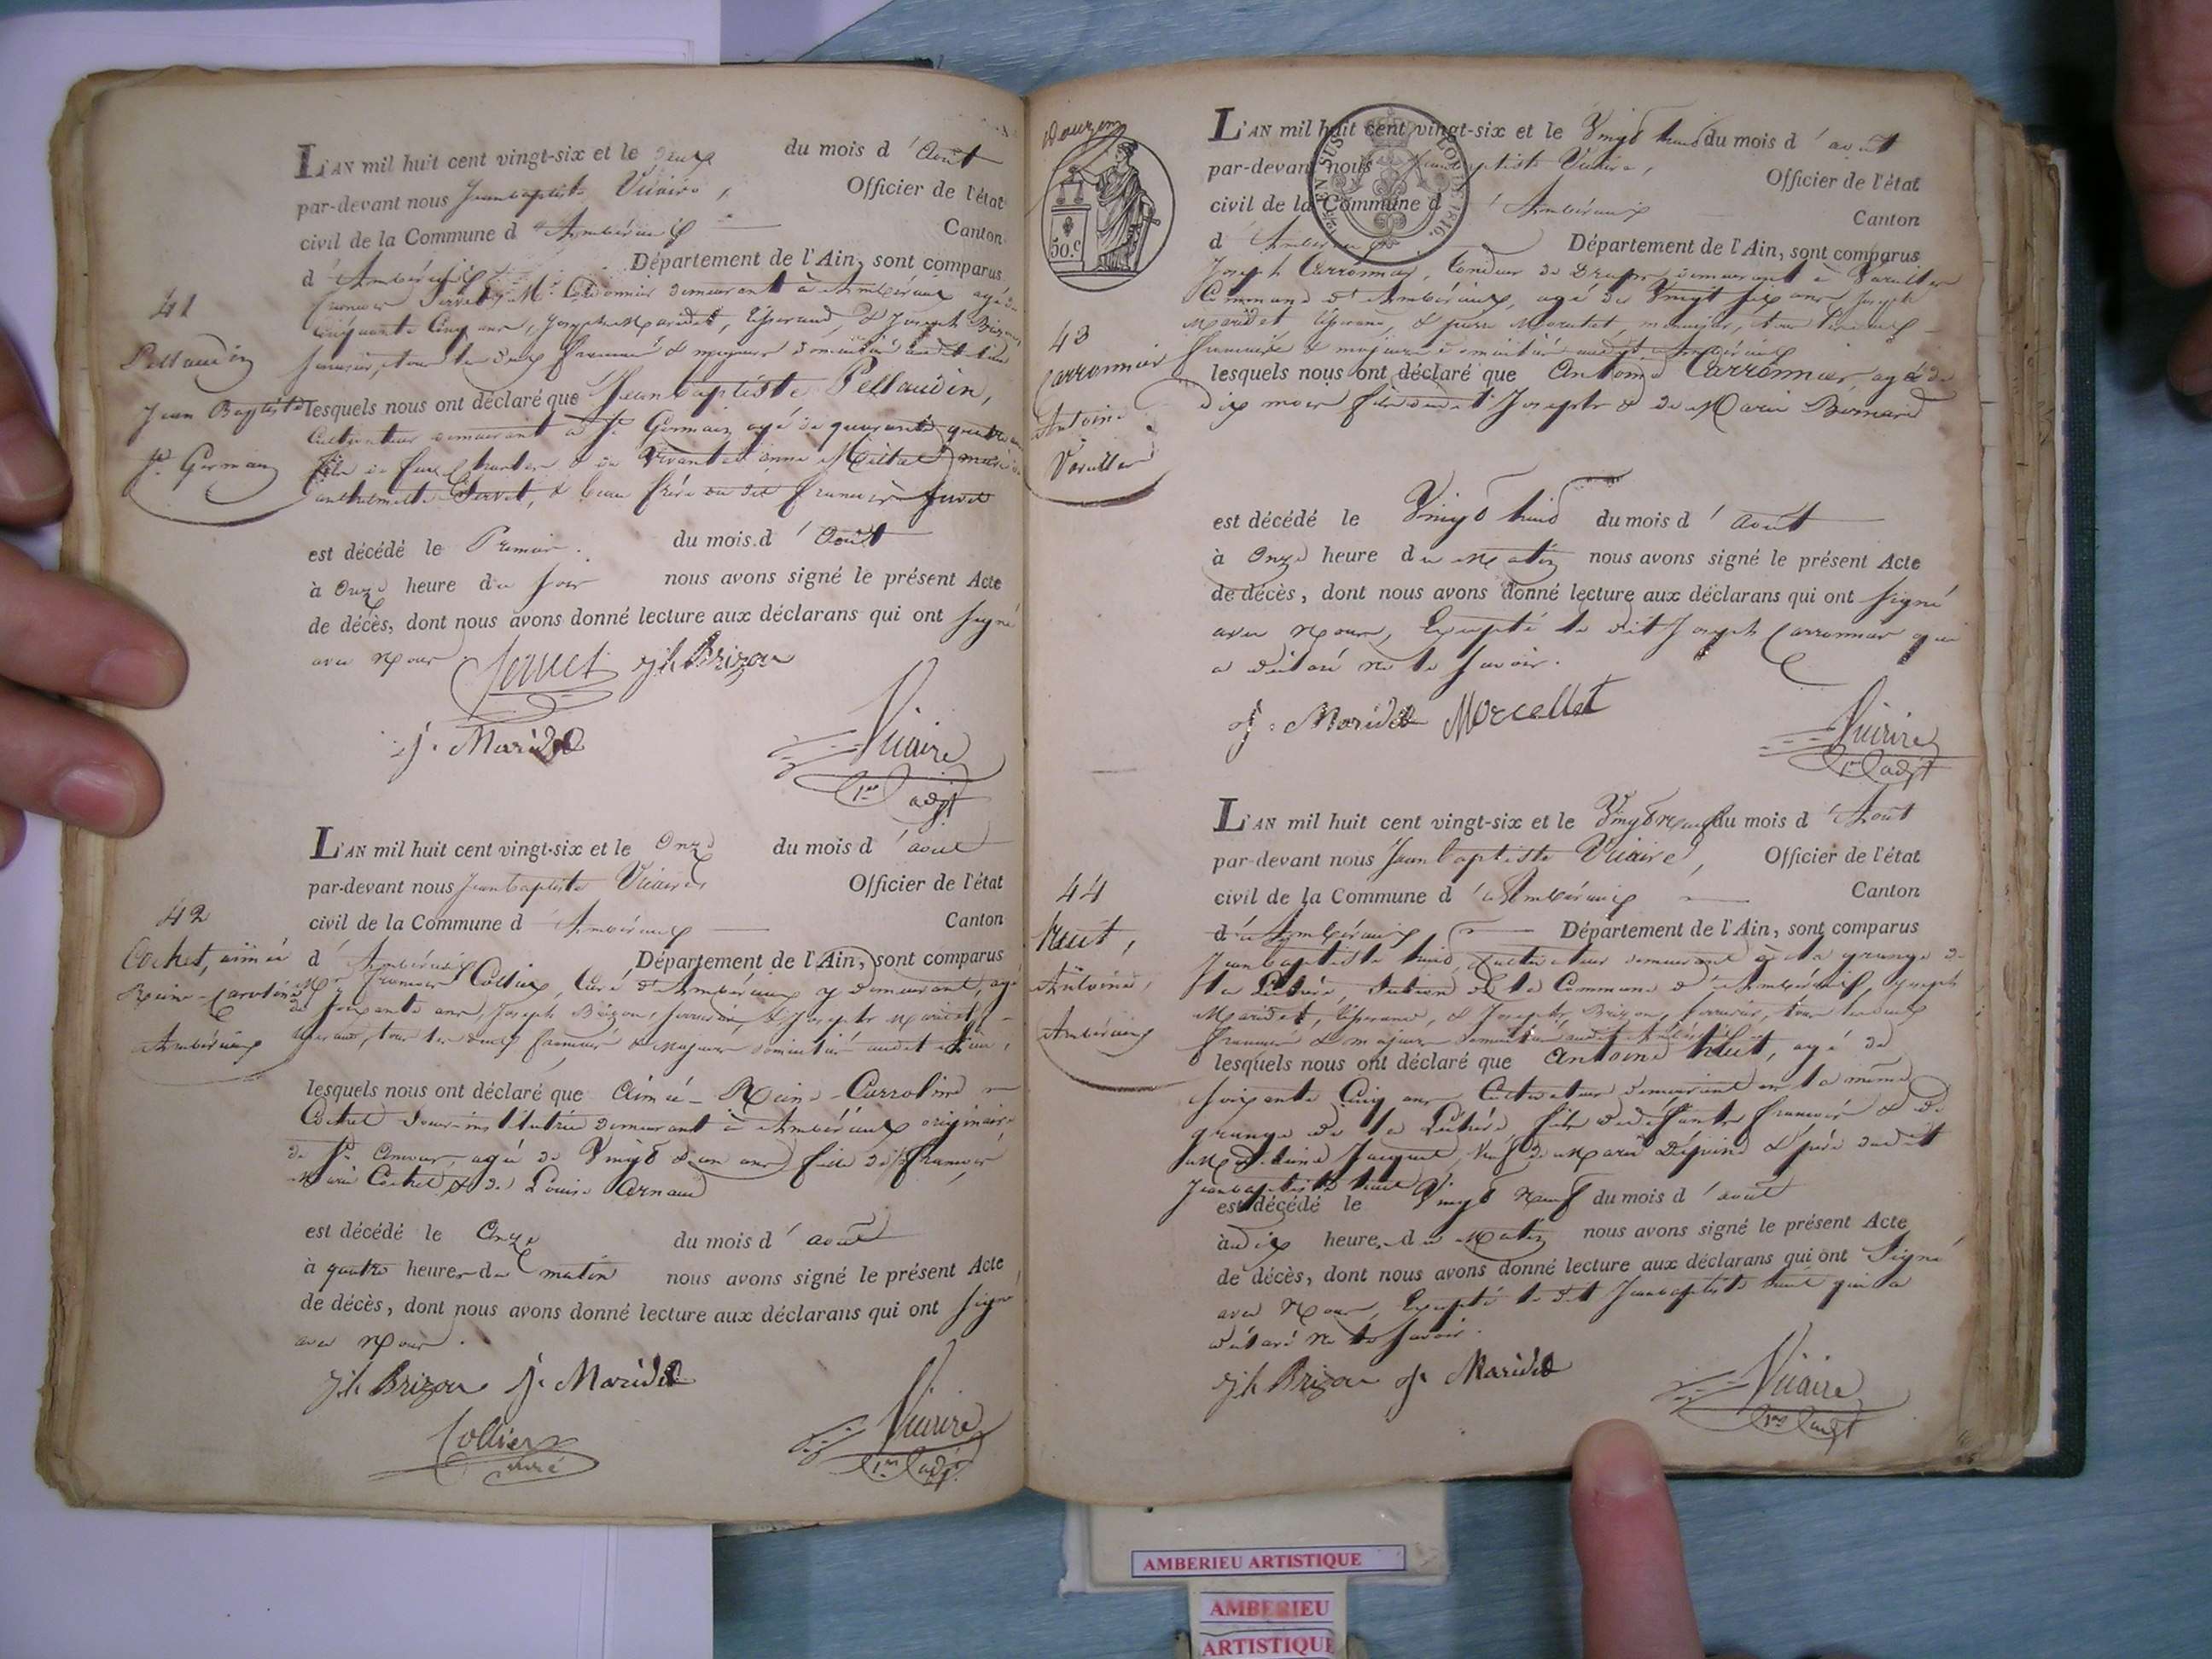 L'AN mil huit cent vingt-six et le deux du mois d'Août
par-devant nous Jean baptiste Vicaire, Officier de l'état
civil de la Commune d'Ambérieux Canton
d'Ambérieux Département de l'Ain, sont comparus
françois Servet, Me Cordonnier demeurant à Ambérieux agé de
cinquante Cinq ans, Joseph Maridet, & Joseph Brizon
41
Pellaudin
Jean Baptiste
St Germain
lesquels nous ont déclaré que Jean baptiste Pellaudin,
Cultivateur demeurant à St Germain agé de quarante quatre ans
fils de feu & de Vivante anne
Servet, & beau frère du dit françois Servet
est décédé le Premier du mois d'Août
à Onze heure du soir nous avons signé le présent Acte
de décès, dont nous avons donné lecture aux déclarans qui ont signé
avec Nous
Servet jh Brizon
j. Maridet
Vicaire
1er adjt
L'AN mil huit cent vingt-six et le Onze du mois d'aout
par-devant nous Jean baptiste Vicaire Officier de l'état
civil de la Commune d'Ambérieux Canton
d'Ambérieux Département de l'Ain, sont comparus
42
Cochet, aimée
Reine-Caroline
Ambérieux
Mr françois Collier, Curé d'Ambérieux y demeurant, agé
de soixante ans, Joseph Brizon, & Joseph Maridet
tous les deux français & Majeurs domiciliés audit Lieu,
lesquels nous ont déclaré que Aimée-Reine-Carroline
Cochet demeurant à Ambérieux originaire
de St Amour, agée de Vingt & un ans fille de françois
Marie Cochet & de Louise Arnaud
est décédé le Onze du mois d'aout
à quatre heures du matin nous avons signé le présent Acte
de décès, dont nous avons donné lecture aux déclarans qui ont signé
avec Nous.
jh Brizon j. Maridet
Collier
curé
Vicaire
1er adjt
50.c
L'AN mil huit cent vingt-six et le Vingt huit du mois d'août
par-devant nous Jean baptiste Vicaire, Officier de l'état
civil de la Commune d'Ambérieux Canton
d'Ambérieux Département de l'Ain, sont comparus
Joseph Carronnier, demeurant à Vareilles
Commune d'Ambérieux, agé de Vingt six ans Joseph
Maridet, & pierre
français & majeurs domiciliés audit Ambérieux
43
Carronnier
Antoine
Vareilles
lesquels nous ont déclaré que Antoine Carronnier, agé de
dix mois fils dudit Joseph & de Marie Bernard
est décédé le Vingt huit du mois d'août
à Onze heure du Matin nous avons signé le présent Acte
de décès, dont nous avons donné lecture aux déclarans qui ont signé
avec Nous, Excepté le dit Joseph Carronnier qui
a déclaré ne le savoir.
j. Maridet Morcellet
Vicaire
1er adjt
L'AN mil huit cent vingt-six et le Vingt neuf du mois d'Aout
par-devant nous Jean baptiste Vicaire, Officier de l'état
civil de la Commune d'Ambérieux Canton
d'Ambérieux Département de l'Ain, sont comparus
44
Antoine,
Ambérieux
Jean baptiste Cultivateur demeurant à la grange de
la de la Commune d'Ambérieux, Joseph
Maridet, & Joseph Brizon, tous les deux
français & majeurs domiciliés
lesquels nous ont déclaré que Antoine agé de
soixante Cinq ans Cultivateur demeurant en la même
grange de la fils de défunts françois & de
Jacquet, Veuf de Marie & père dudit
Jean baptiste
est décédé le Vingt Neuf du mois d'aout
à dix heures du Matin nous avons signé le présent Acte
de décès, dont nous avons donné lecture aux déclarans qui ont Signé
avec Nous, Excepté le dit Jean baptiste qui a
déclaré ne le savoir.
jh Brizon j. Maridet
Vicaire
1er adjt
AMBERIEU ARTISTIQUE
AMBERIEU
ARTISTIQUE